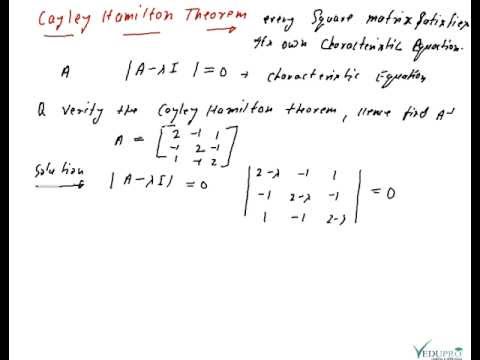 Cayley Hamilton Theorem → every Square matrix Satisfies
its own Characteristic Equation.
A |A-λI| = 0 → Characteristic Equation
Q verify the Cayley Hamilton theorem, Hence find A⁻¹
A = [2 -1 1
-1 2 -1
1 -1 2]
Solution |A-λI| = 0
|2-λ -1 1|
|-1 2-λ -1| = 0
|1 -1 2-λ|
VEDUPRO